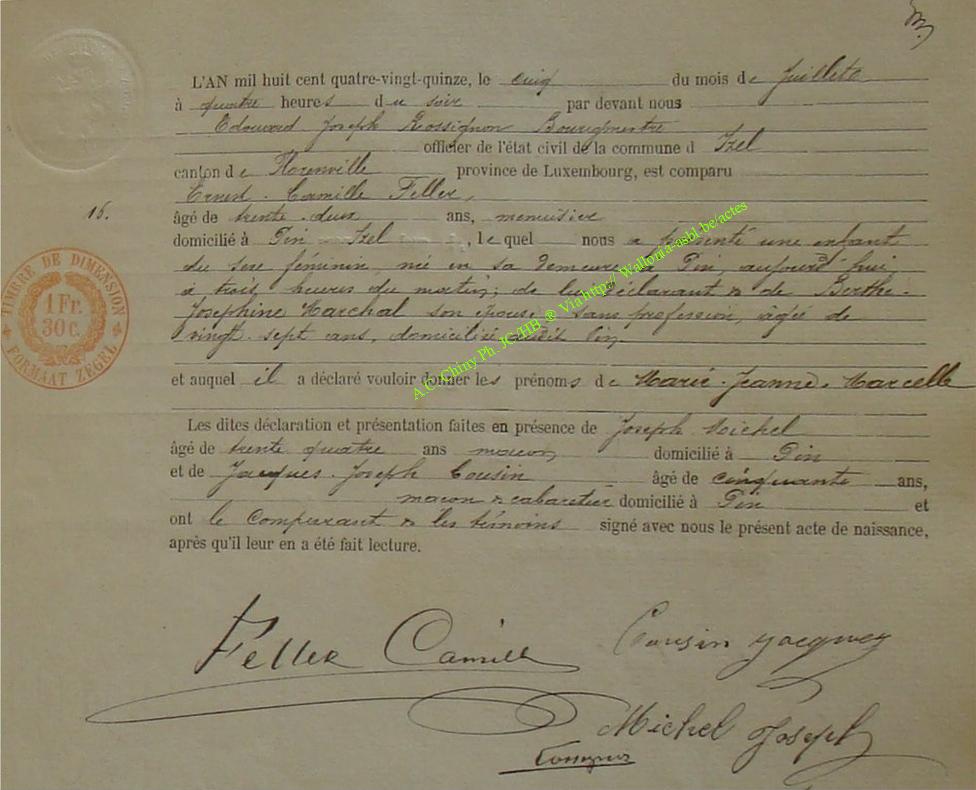 L'AN mil huit cent quatre-vingt-quinze, le cinq du mois de Juillet
à quatre heures du soir par devant nous
Edouard Joseph Rossignon Bourgmestre
officier de l'état civil de la commune d Izel
canton de Florenville province de Luxembourg, est comparu
Ernest Camille Feller,
16.
âgé de trente deux ans, menuisier
domicilié à Pin Izel, lequel nous a présenté une enfant
du sexe féminin, née en sa demeure à Pin, aujourd'hui,
à trois heures du matin; de lui déclarant & de Berthe
Josephine Marchal son épouse, sans profession, âgée de
vingt sept ans, domiciliée audit Pin
et auquel il a déclaré vouloir donner les prénoms de Marie-Jeanne-Marcelle
Les dites déclaration et présentation faites en présence de Joseph Michel
âgé de trente quatre ans maçon domicilié à Pin
et de Jacques Joseph Cousin âgé de cinquante ans,
maçon & cabaretier domicilié à Pin et
ont le comparant & les témoins signé avec nous le présent acte de naissance,
après qu'il leur en a été fait lecture.
TIMBRE DE DIMENSION
1 Fr.
30 C.
FORMAAT ZEGEL
A.G.Chiny Ph. JC/HB ® Via http// Wallonia-asbl.be/actes
Feller Camille
Cousin Jacques
Michel Joseph